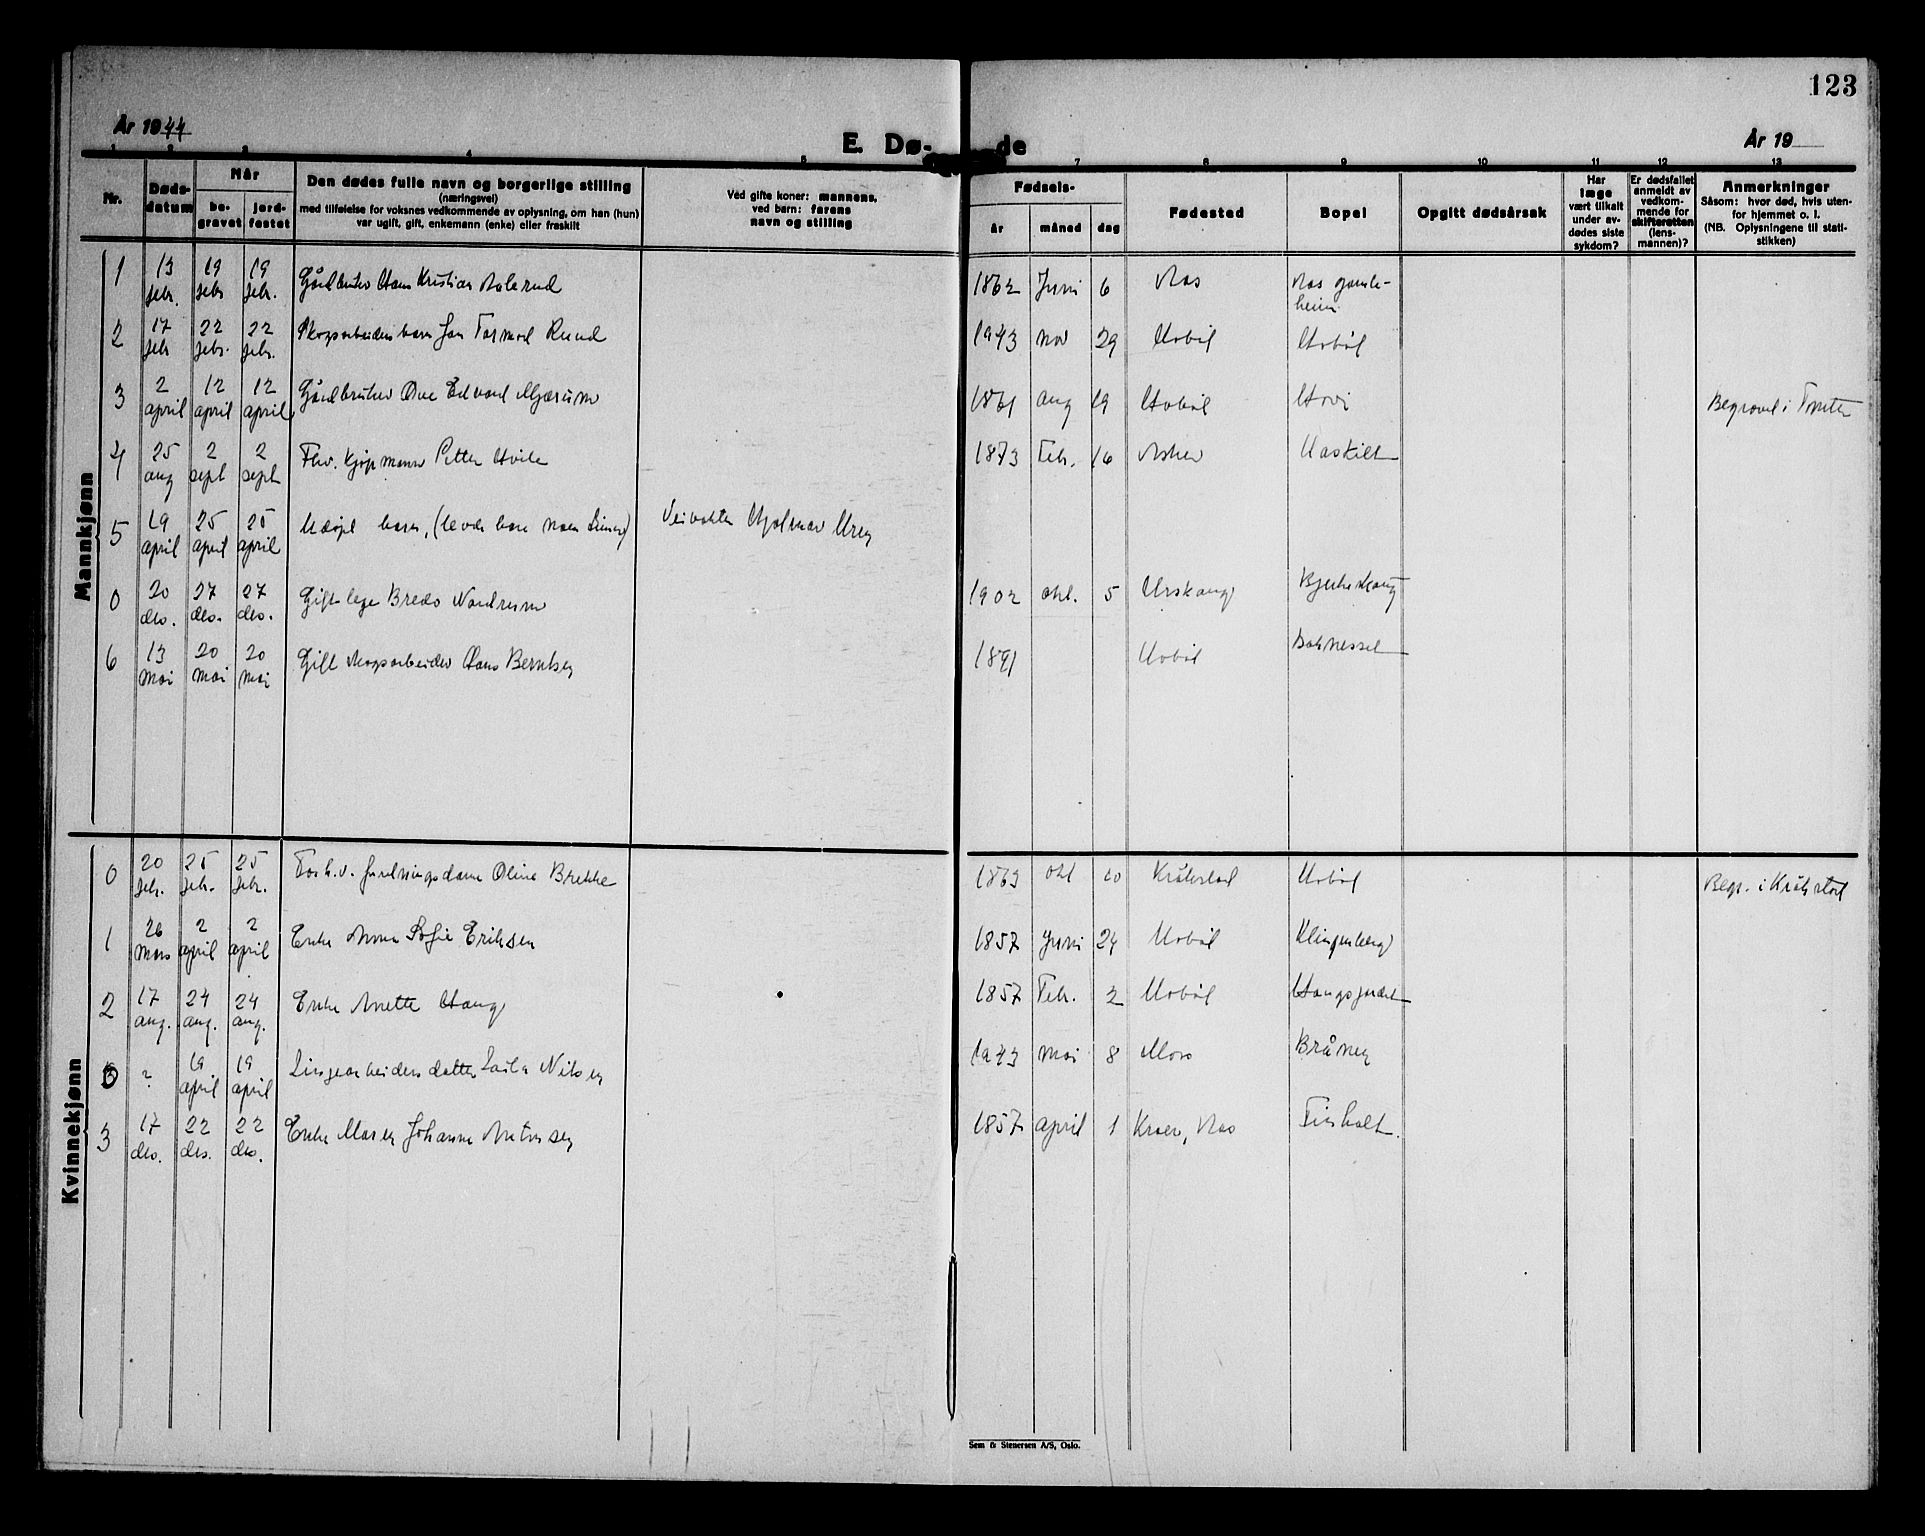 123
År 1944
E. Dø-de
År 19
1 2 3 4 5 7 8 9 10 11 12 13
Nr.
Døds-
datum
Når
be-
gravet
jord-
festet
Den dødes fulle navn og borgerlige stilling
(næringsvei)
med tilføielse for voksnes vedkommende av oplysning, om han (hun)
var ugift, gift, enkemann (enke) eller fraskilt
Ved gifte koner: mannens,
ved barn: farens
navn og stilling
Fødsels-
år måned dag
Fødested
Bopel
Opgitt dødsårsak
Har
læge
vært tilkalt
under av-
dødes siste
sykdom?
Er dødsfallet
anmeldt av
vedkom-
mende for
skifteretten
(lens-
mannen)?
Anmerkninger
Såsom: hvor død, hvis uten-
for hjemmet o. l.
(NB. Oplysningene til stati-
stikken)
Mannkjønn
1 13 febr. 19 febr 19 febr. Gårdbruker Hans Kristian 1862 Juni 6 Aas Aas gamle-
heim
2 17 febr 22 febr. 22 febr. Skogsarbeiders barn Jan Tormod Ruud 1943 nov 29 Hobøl Hobøl
3 2 april 12 april 12 april Gårdbruker Ove Edvard Mjærum 1861 aug 19 Hobøl Begravet i Tomter
4 25 aug 2 sept 2 sept Fhv. kjøpmann Petter Hvile 1873 Febr. 16 Asker
5 19 april 25 april 25 april Udøpt barn, (levde bare noen timer) Veivokter Hjalmar Uren
0 20 des. 27 des. 27 des. Gift lege Bredo Nordrum 1902 okt. 5 Urskaug Bjerkeskaug
6 13 mai 20 mai 20 mai Gift skogsarbeider Hans Berntsen 1891 Hobøl
Kvinnekjønn
0 20 febr. 25 febr. 25 febr. Forh.v. Oline Brekke 1863 okt 10 Kråkstad Hobøl Begr. i Kråkstad
1 26 mars 2 april 2 april Enke Anna Sofie Eriksen 1857 Juni 24 Hobøl Klingenberg
2 17 aug. 24 aug. 24 aug. Enke Anette Haug 1857 Febr. 2 Hobøl Haugsjordet
0 ? 19 april 19 april datter Laila Nilsen 1943 mai 8 Moss Bråten
3 17 des. 22 des. 22 des. Enke Maren Johanne Antonsen 1857 april 1 Kroer, Aas Finholt.
Sem & Stenersen A/S, Oslo.